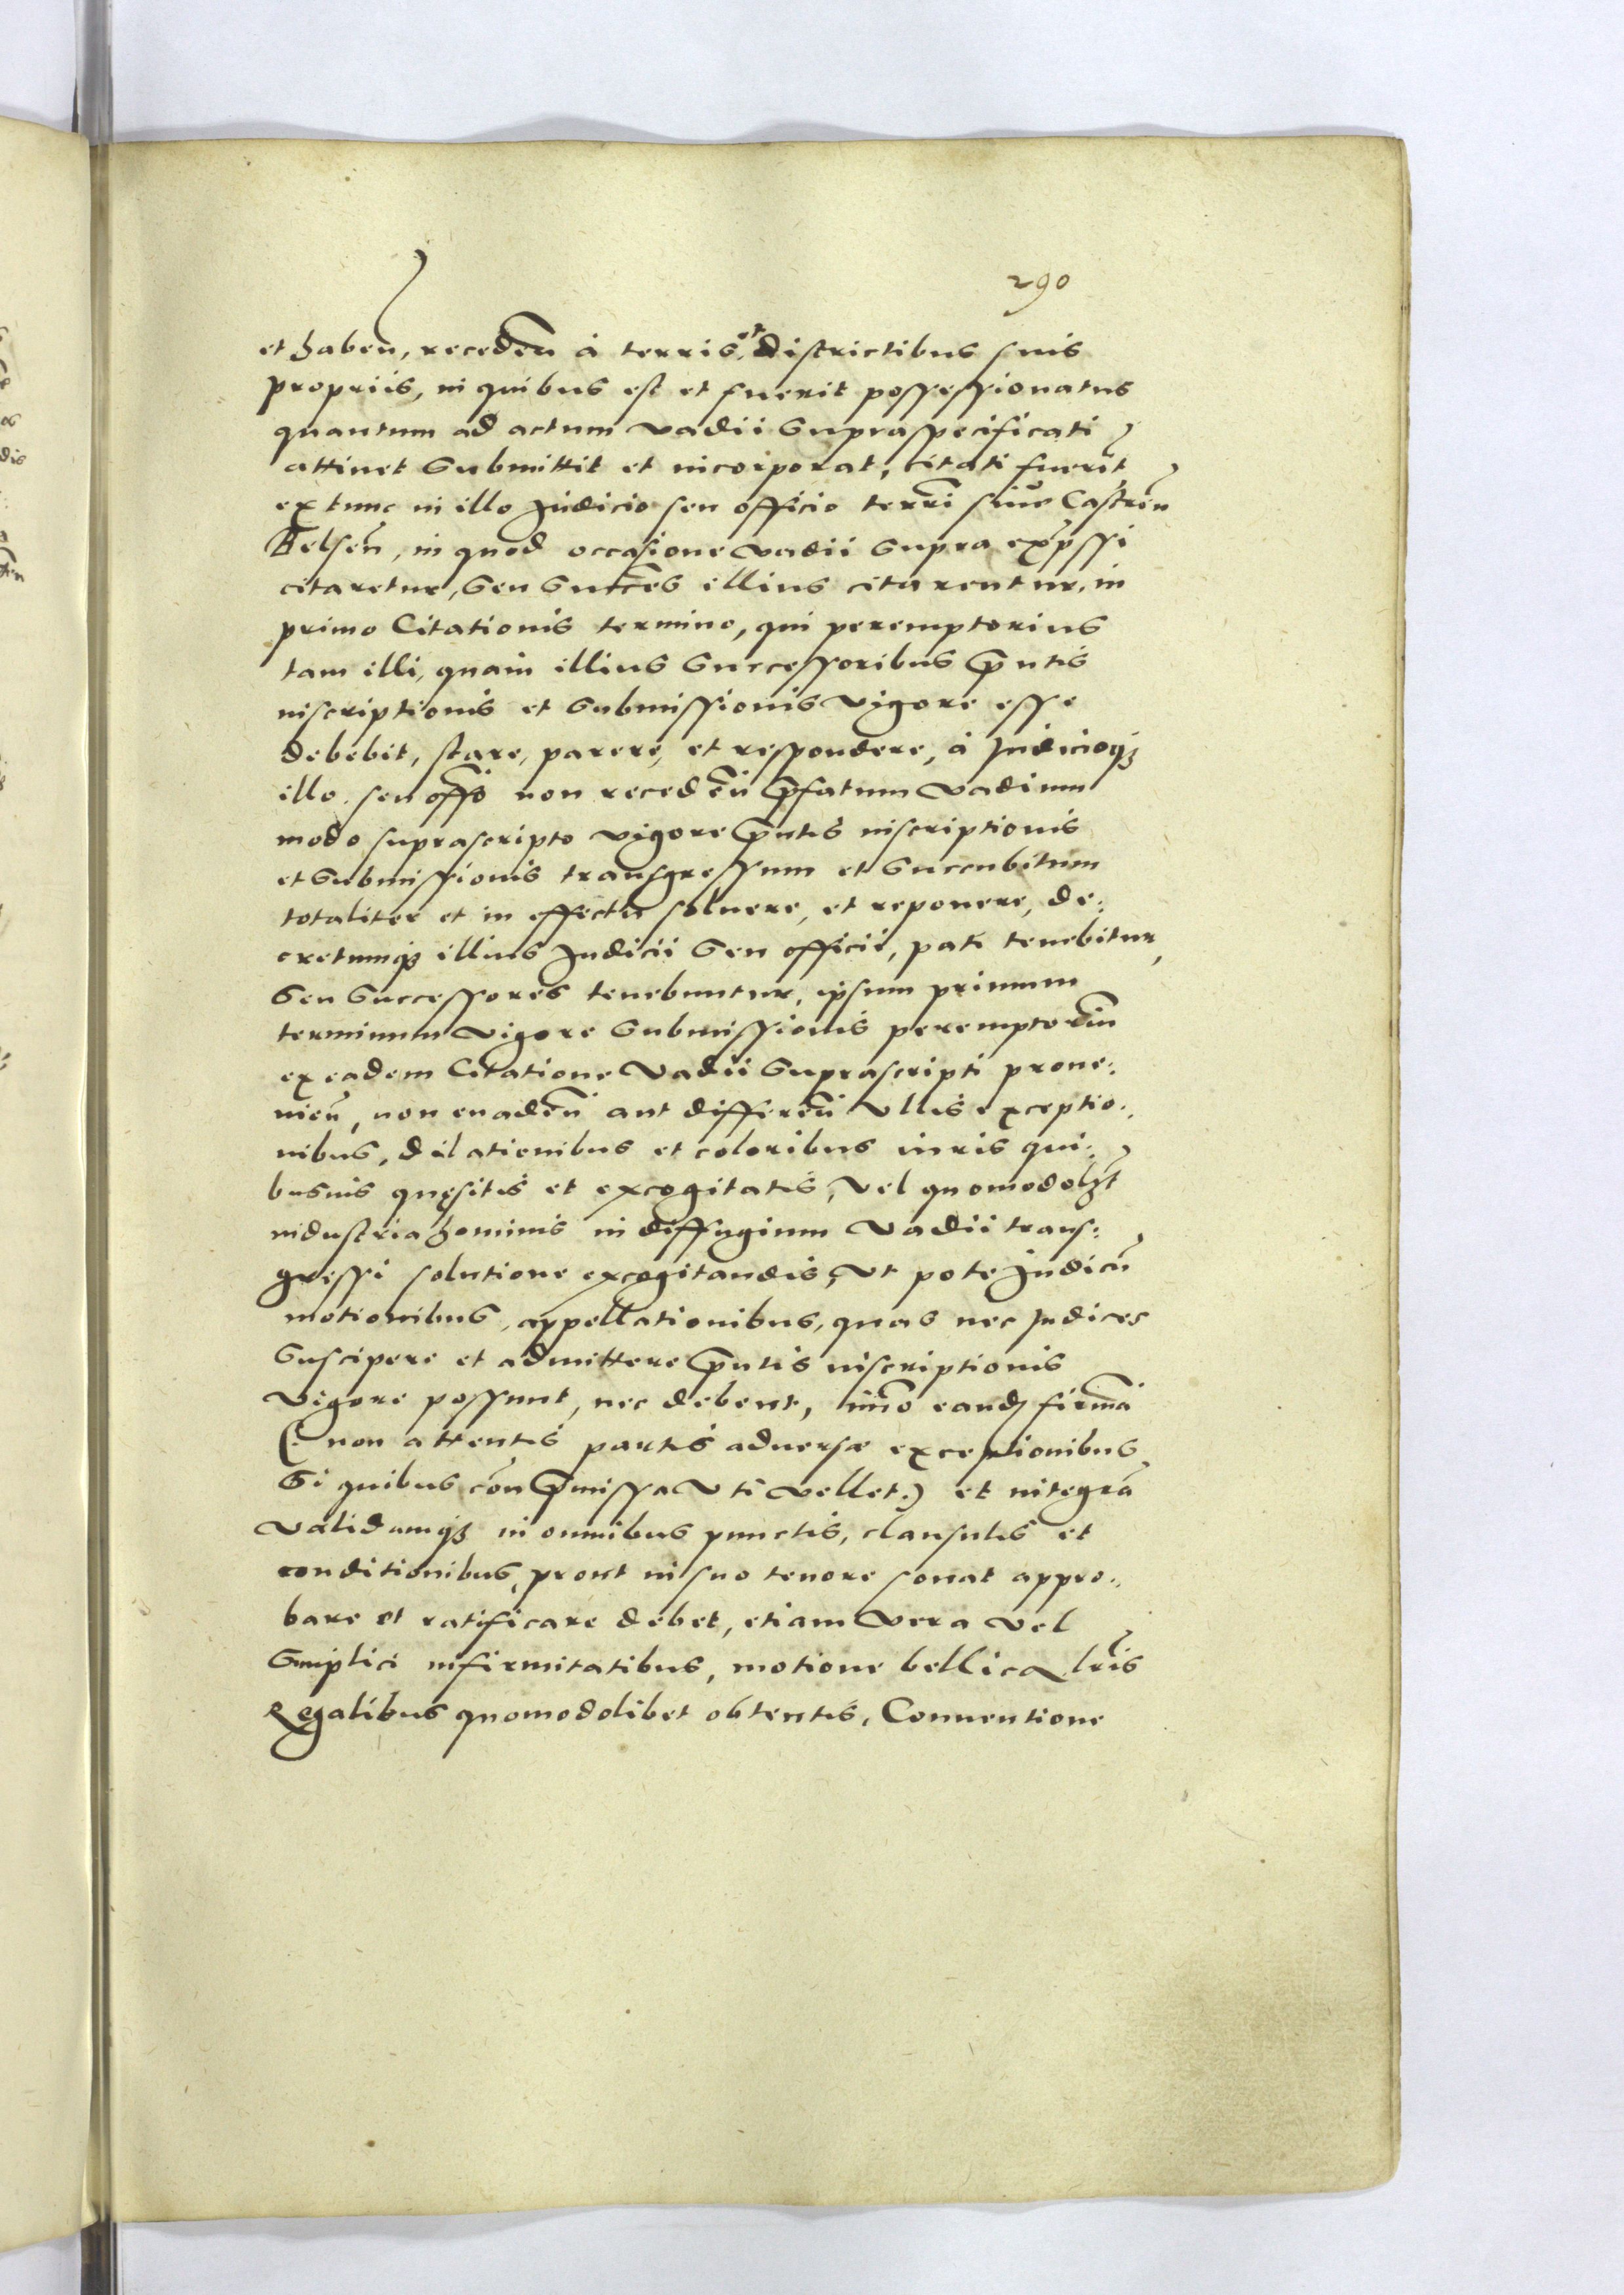 290
et haben̄, recedeñ à terris et districtibus suis
propriis, in quibus est et fuerit possessionatus
quantum ad actum vadii supraspecificati
attinet submittit et incorporat, citati fuerīt
ex tunc in illo Judicio seu officio terrī siue Castreñ
Belseñ, in quod occasione vadii supra exp̄ssi
citaretur, seu succ̄es illius citarentur, in
primo Citationis termino, qui peremptorius
tam illi, quam illius successoribus p̄ntis
inscriptionis et submissionis vigore esse
debebit, stare, parere, et respondere, à Judicioq;
illo seu offō non recedeñ p̄fatum vadium
modo suprascripto vigore p̄ntis inscriptionis
et submissionis transgressum et succubitum
totaliter et in effectu soluere, et reponere, de:
cretumq; illius Judicii seu officii, pati tenebitur,
seu successores tenebuntur, ipsum primum
terminum vigore submissionis peremptoriū
ex eadem Citatione vadii suprascripti proue:
nieñ, non euadeñ aut differeñ vllis exceptio:
nibus, dilationibus et coloribus iuris qui:
busuis quęsitis et excogitatis, vel quomodolꝫt
industria hominis in diffugium vadii trans:
gressi solutione excogitandis, vt pote Judicū
motionibus, appellationibus, quas nec Judices
suscipere et admittere p̄ntis inscriptionis
vigore possunt, nec debent, im̄o eandꝫ firmā
(: non attentis partis aduersæ exceptionibus
si quibus con̄ p̄missa vti vellet :) et integrā
validamq; in omnibus punctis, clausulis et
conditionibus, prout in suo tenore sonat appro:
bare et ratificare debet, etiam vera vel
simplici infirmitatibus, motione bellica lr̄is
Regalibus quomodolibet obtentis, Conuentione